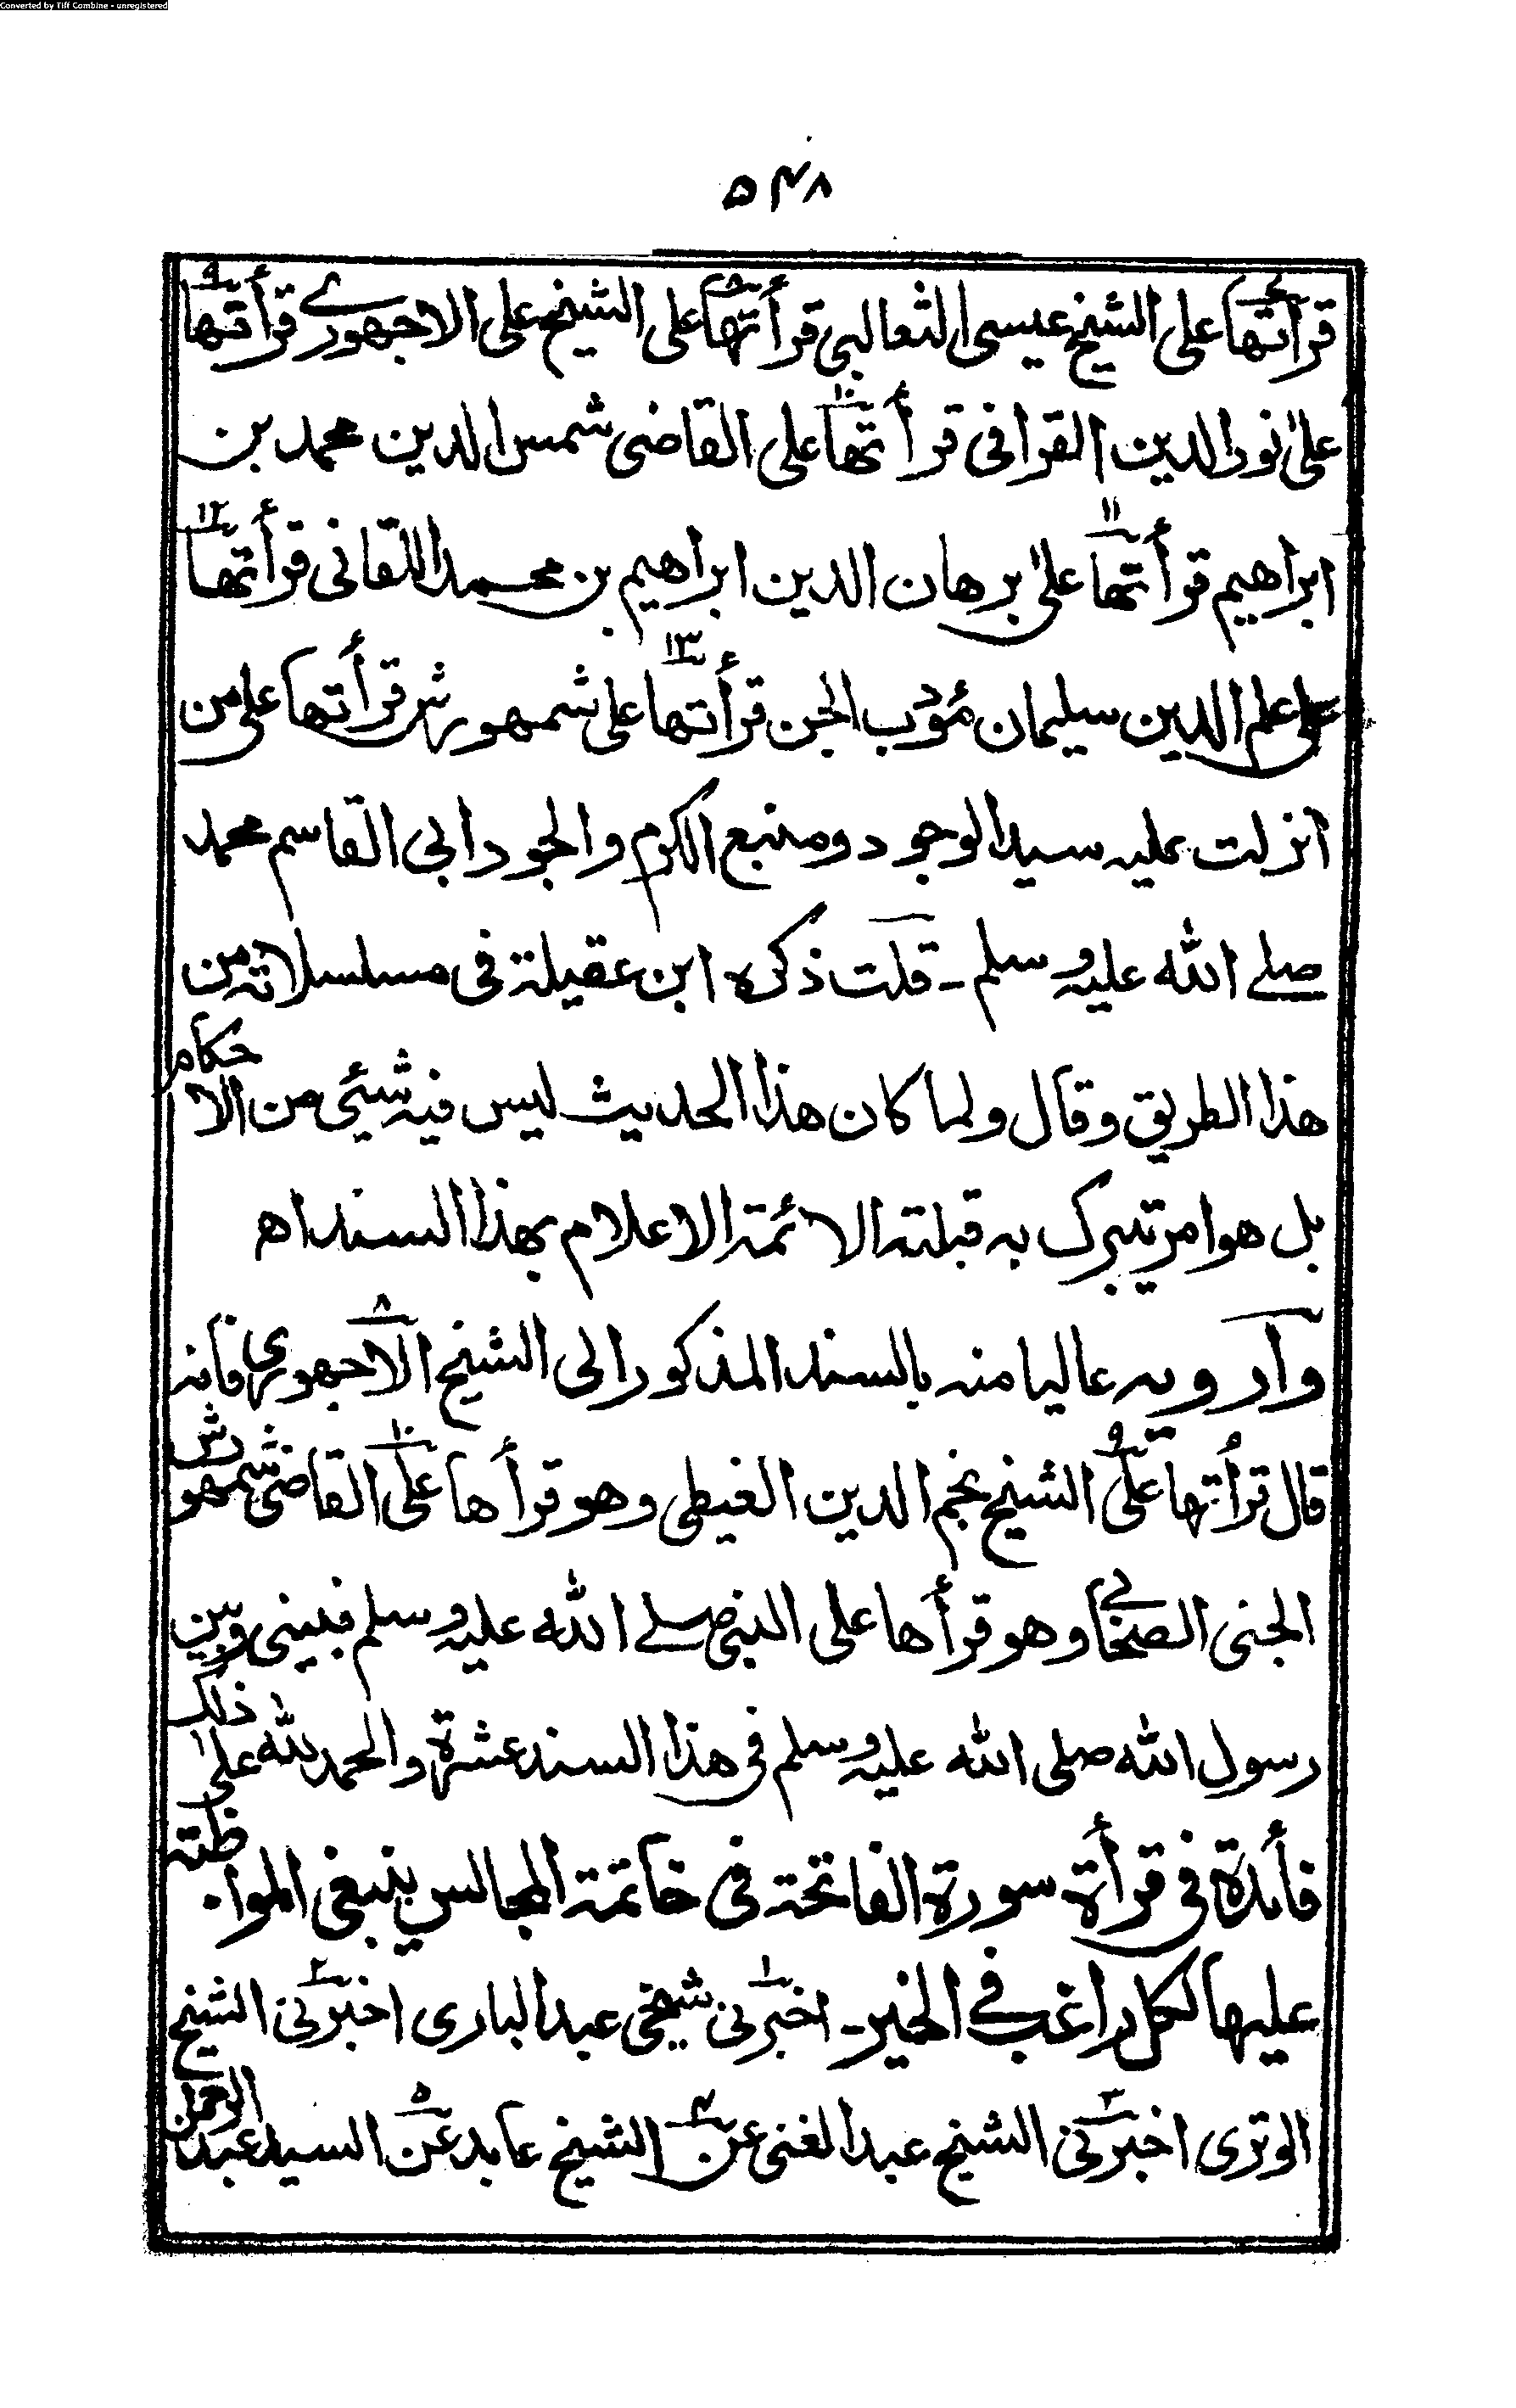 Converted by Tiff Combine - unregistered
۵۴۸
قرأتها على الشيخ عيسى الثعالبي قرأتها على الشيخ على الاجهوري قرأتها
على نور الدين القرافى قرأتها على القاضى شمس الدين محمد بن
ابراهيم قرأتها على برهان الدين ابراهيم بن محمد اللقانى قرأتها
على علم الدين سليمان مؤدب الجن قرأتها على شمهورش قرأتها على من
انزلت عليه سيد الوجود ومنبع الكرم والجود ابى القاسم محمد
صلے الله عليه وسلم ـ قلت ذكره ابن عقيلة فى مسلسلاته من
هذا الطريق وقال ولما كان هذا الحديث ليس فيه شيئ من الاحكام
بل هو امر يتبرك به قبلته الائمة الاعلام بهذا السند اه
وآرويه عاليا منه بالسند المذكور الى الشيخ الاجهورى فانه
قال قرأتها على الشيخ نجم الدين الغيطى وهو قرأها على القاضى شمهورش
الجنى الصحابي وهو قرأها على النبى صلے الله عليه وسلم فبينى وبين
رسول الله صلى الله عليه وسلم فى هذا السند عشرة والحمد لله على ذلك
فأئدة فى قرأة سورة الفاتحة فى خاتمة المجالس ينبغى المواظبته
عليها لكل راغب فے الخير ـ اخبرنى شيخى عبد البارى اخبرنى الشيخ
الوترى اخبرنى الشيخ عبد الغنى عن الشيخ عابد عن السيد عبد الرحمن